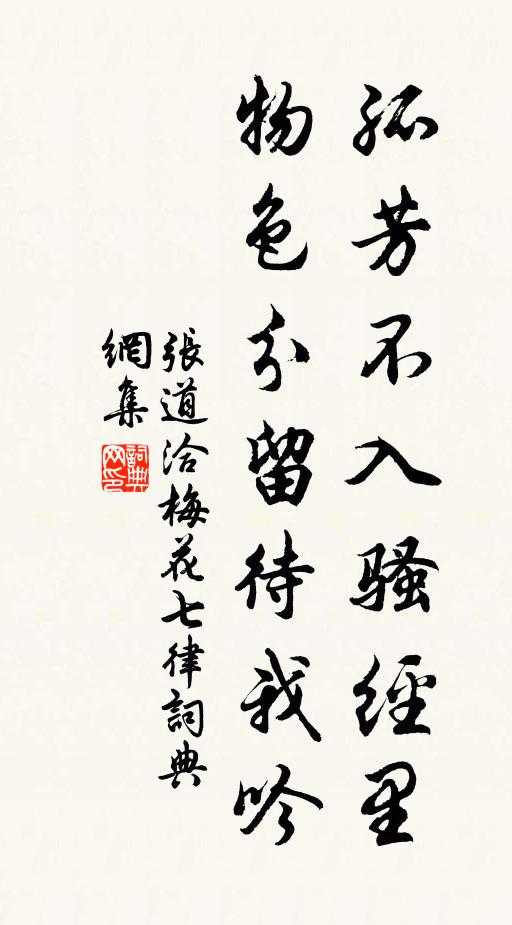 孤芳不入騷經里
物色分留待我吟
張道洽梅花七律詞典
網集
詞典
网印